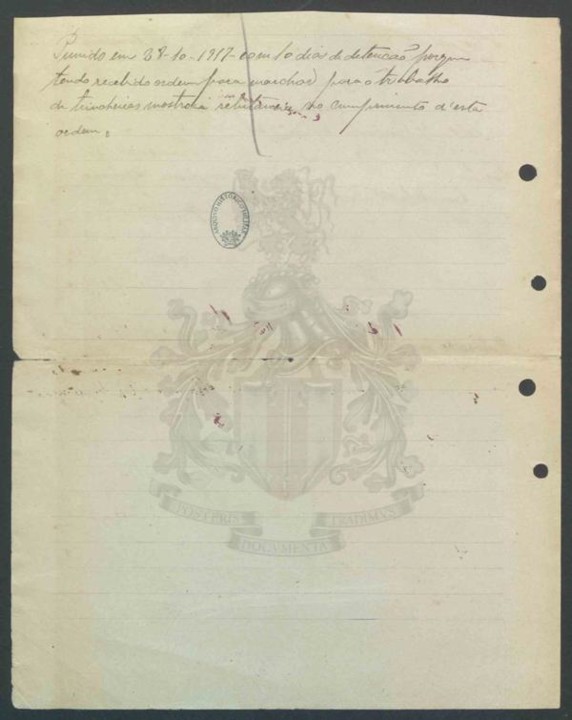 Punido em 28-10-1917 com 10 dias de detenção porque
tendo recebido ordem para marchar para o trabalho
de trincheiras mostrou relutancia no cumprimento d'esta
ordem.
ARQUIVO HISTORICO MILITAR
POSTERIS TRADIMVS
DOCVMENTA